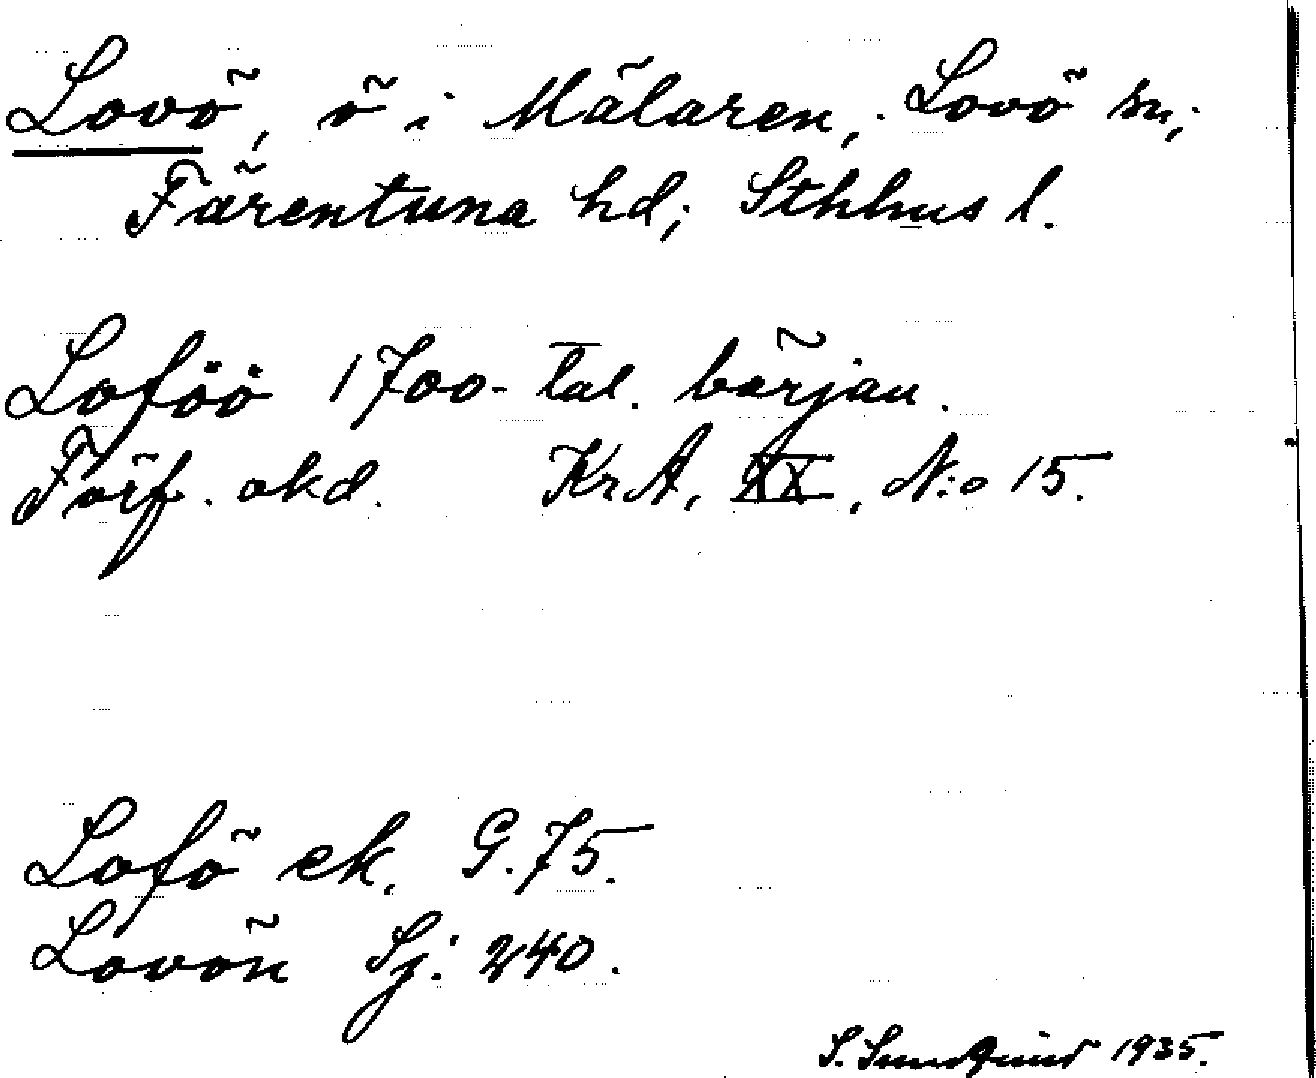 Lovö, ö i Mälaren, Lovö sn,
Färentuna hd; Sthlms l.
Loföö 1700-tal. början.
Förf. okd. KrA, XX, N:o 15.
Lofö ek. G. 75.
Lovön Sj: 240.
S. 1935.